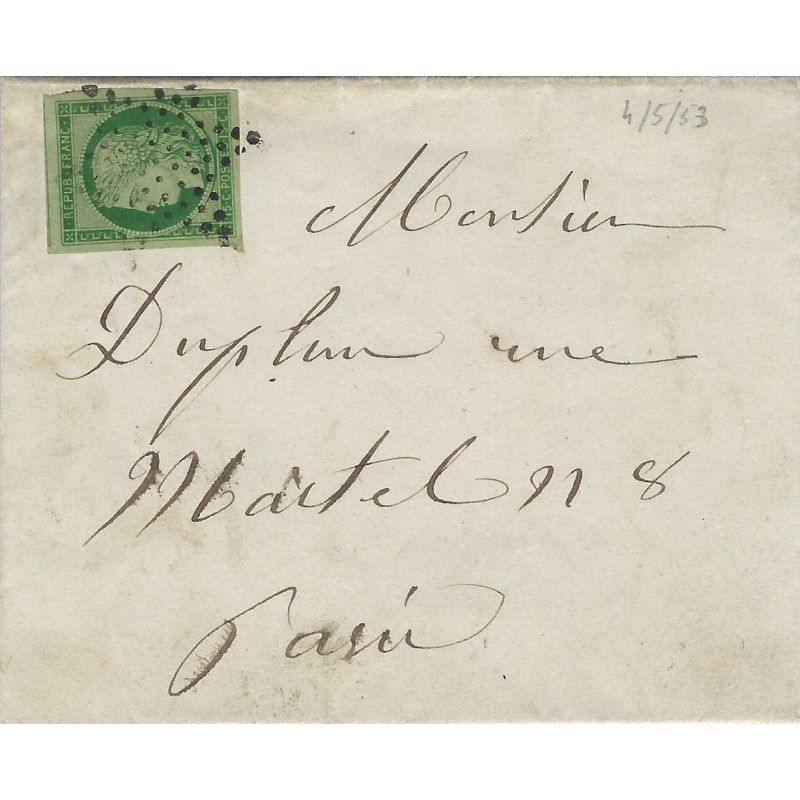 REPUB. FRANC.
15 C. POS
C
4/5/53
Monsieur
Duplan rue
Martel n 8
Paris